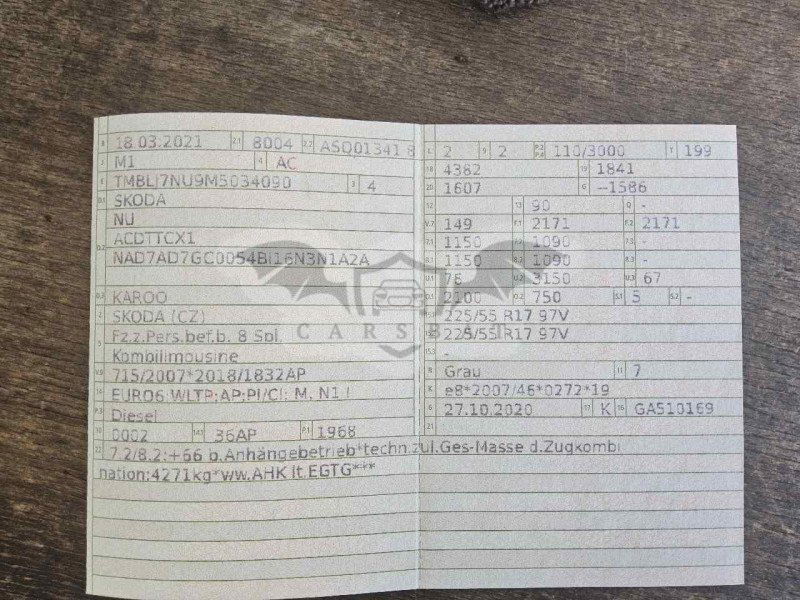 B 18.03.2021 2.1 8004 2.2 ASQ01341 8
J M1 4 AC
E TMBLJ7NU9M5034090 3 4
D.1 SKODA
NU
D.2 ACDTTCX1
NAD7AD7GC0054BI16N3N1A2A
D.3 KAROQ
2 SKODA (CZ)
5 Fz.z.Pers.bef.b. 8 Spl.
Kombilimousine
V.9 715/2007*2018/1832AP
14 EURO6 WLTP;AP;PI/CI; M, N1 I
P.3 Diesel
10 0002 14.1 36AP P.1 1968
L 2 9 2 P.2 P.4 110/3000 T 199
18 4382 19 1841
20 1607 G --1586
12 13 90 Q -
V.7 149 F.1 2171 F.2 2171
7.1 1150 7.2 1090 7.3 -
8.1 1150 8.2 1090 8.3 -
U.1 76 U.2 3150 U.3 67
O.1 2100 O.2 750 S.1 5 S.2 -
15.1 225/55 R17 97V
15.2 225/55 R17 97V
15.3 -
R Grau 11 7
K e8*2007/46*0272*19
6 27.10.2020 17 K 16 GA510169
21
22 7.2/8.2:+66 b.Anhängebetrieb*techn.zul.Ges-Masse d.Zugkombi
nation:4271kg*ww.AHK lt.EGTG***